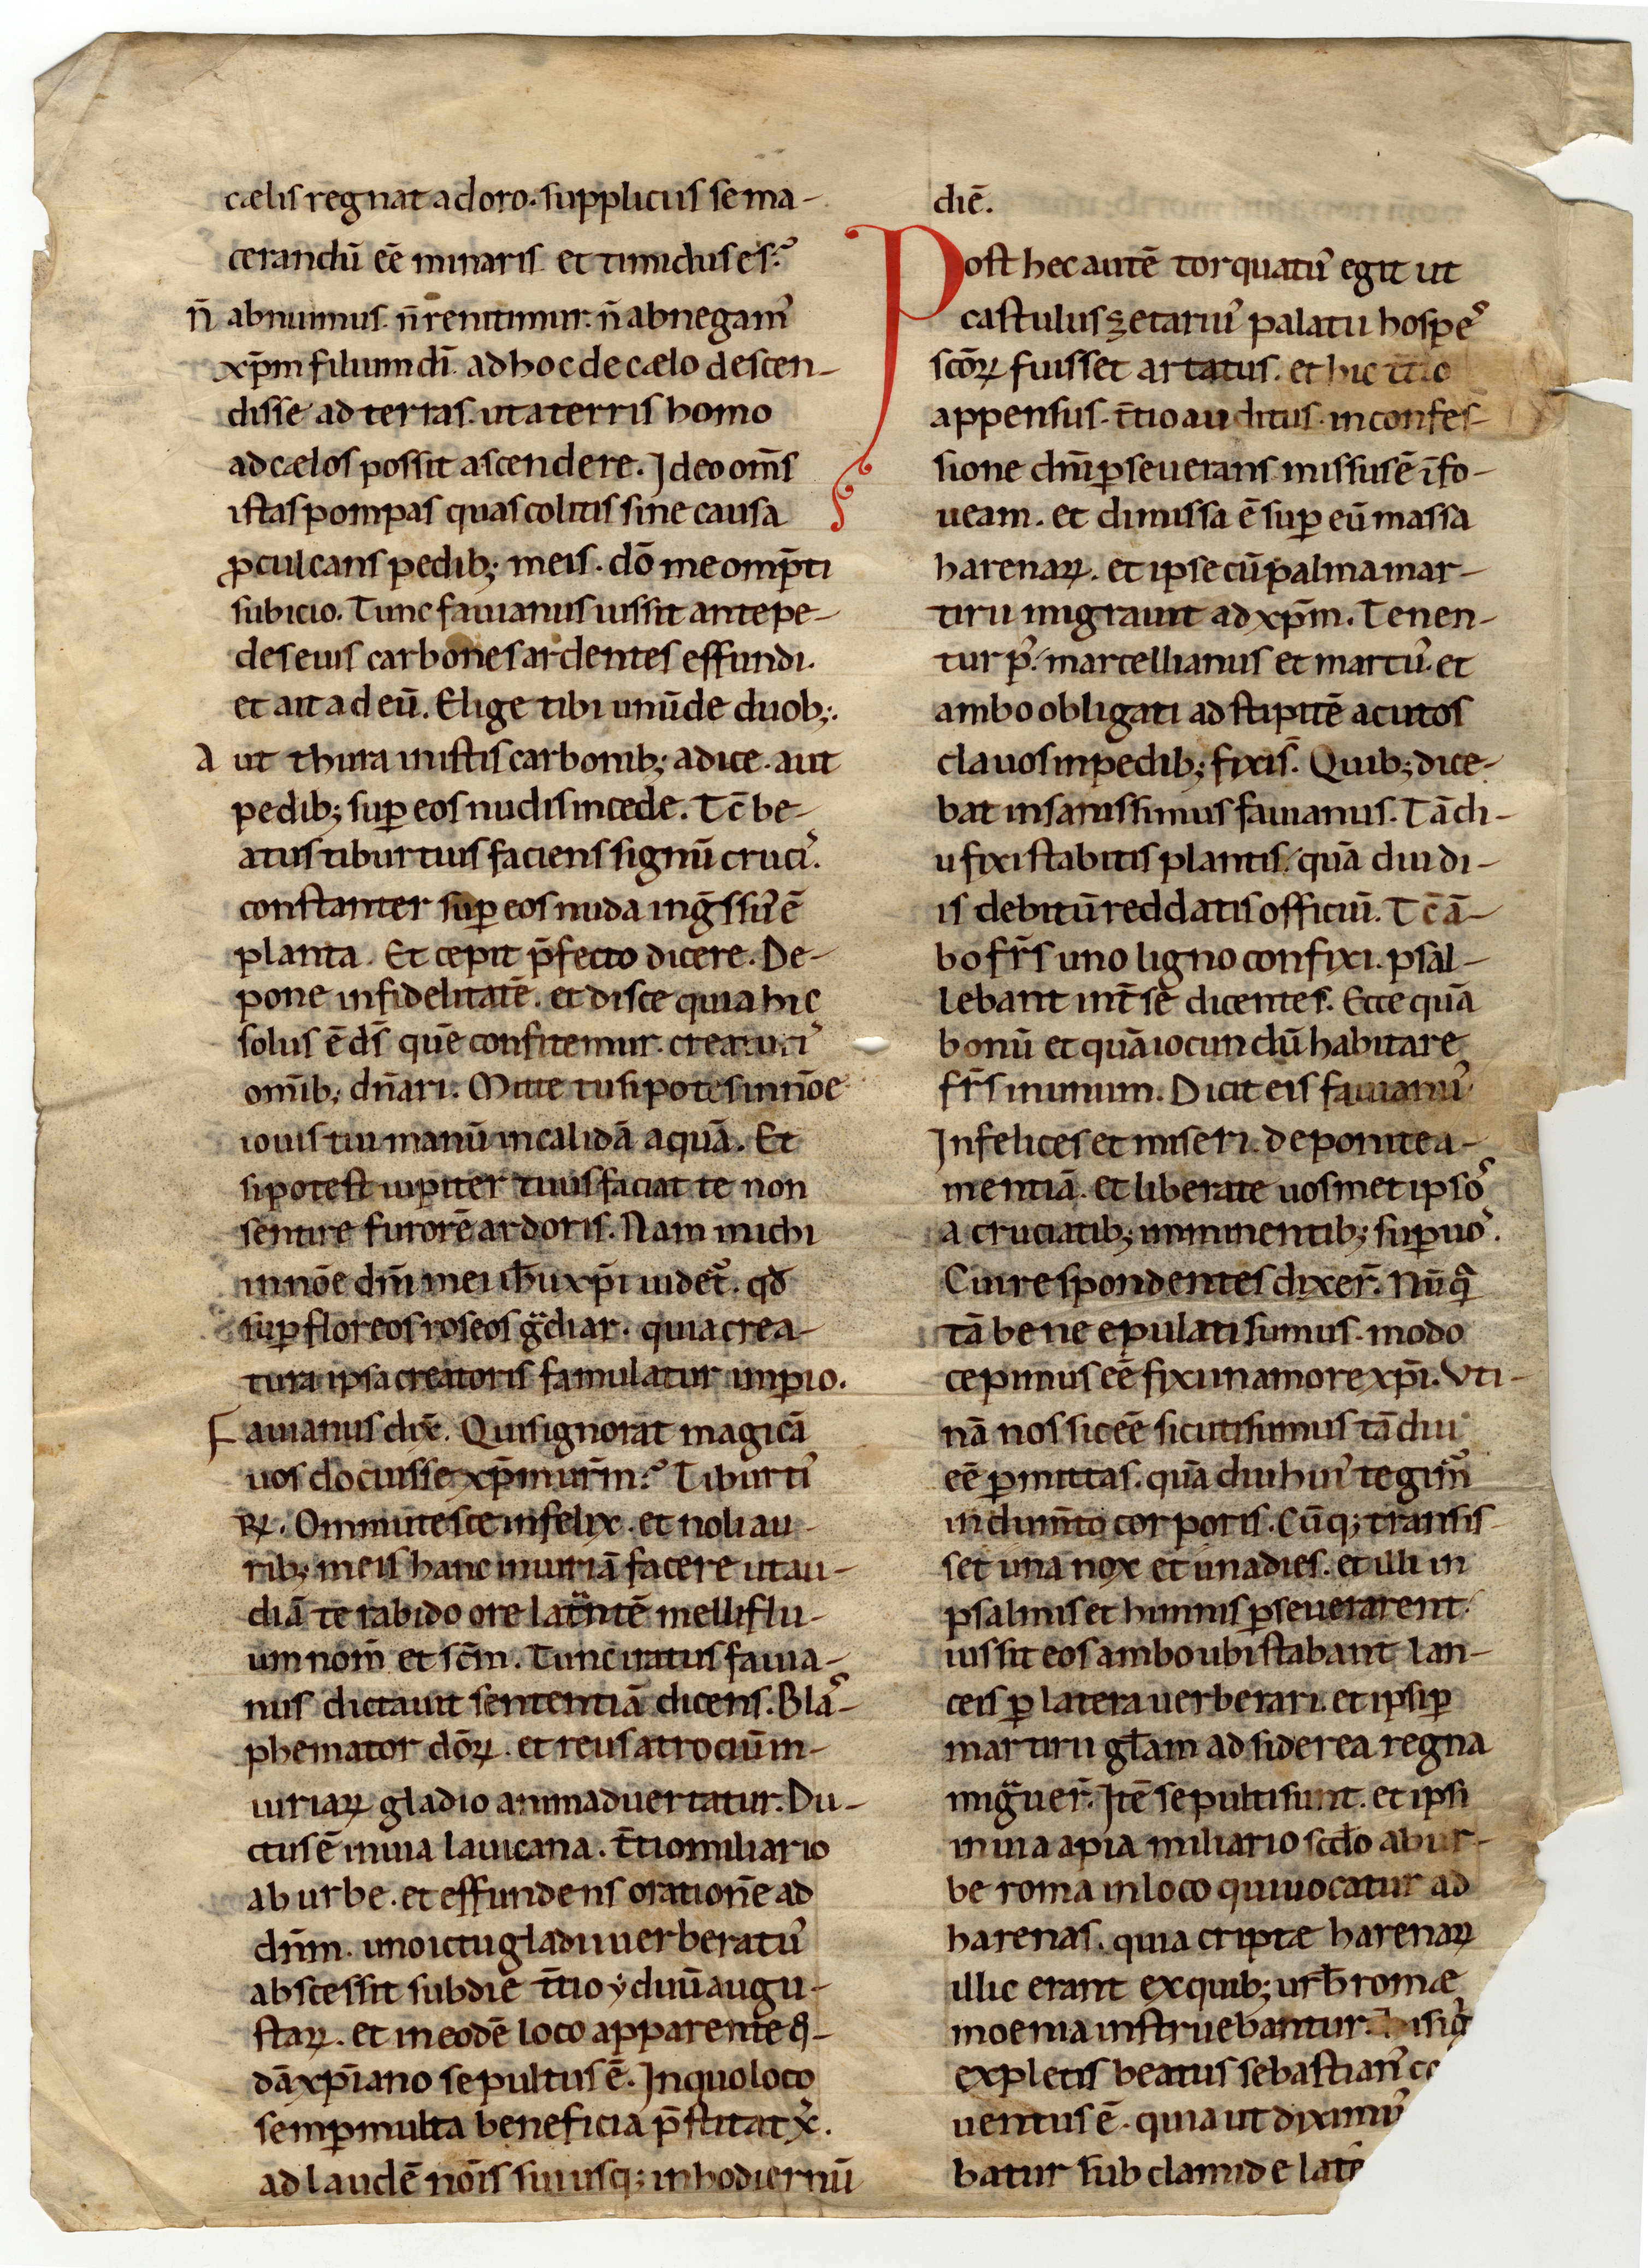 cælis regnat adoro. suppliciis se ma-
cerandū eē minaris et timidus es?
n̄ abnuimus. n̄ renitimur. n̄ abnegam᾽
xp̄m filium dī. ad hoc de cælo descen-
disse ad terras. ut a terris homo
ad cælos possit ascendere. Ideo om̄s
istas pompas quas colitis sine causa
ꝓculcans pedib; meis. dō me omp̄ti
subicio. Tunc fauianus iussit ante pe-
des eius carbones ardentes effundi.
et ait ad eū. Elige tibi unū de duob;.
Aut thura in istis carbonib; adice. aut
pedib; suꝑ eos nudis incede. Tc̄ be-
atus tiburtius faciens signū cruci᾽.
constanter suꝑ eos nuda ing̃ssu᾽ ē
planta. Et cepit p̄fecto dicere. De-
pone infidelitatē. et disce quia hic
solus ē ds̄ quē confitemur. creaturi᾽
om̄ib; dn̄ari. Mitte tu si potes in nōe
iouis tui manū in calidā aquā. Et
si potest iupiter tuus faciat te non
sentire furorē ardoris. Nam michi
in nōe dn̄i mei ih̄u xp̄i uidet᾽. qđ
suꝑ floreos roseos g̃diar. quia crea-
tura ipsa creatoris famulatur imꝑio.
Fauianus dix̄. Quis ignorat magicā
uos docuisse xp̄m ur̄m? Tiburti᾽
Rꝝ. Ommutesce infelix. et noli au-
rib; meis hanc iniuriā facere ut au-
diā te rabido ore lat̃ntē melliflu-
um nom̄ et sc̄m. Tunc iratus fauia-
nus dictauit sententiā dicens. Bla᾽-
phemator dōꝝ. et reus atrociū in-
iuriaꝝ gladio animaduertatur. Du-
ctus ē in uia lauicana. t̄tio miliario
ab urbe. et effundens orationē ad
dn̄m. uno ictu gladii uerberatu᾽
abscessit sub die t̄tio yduū augu-
staꝝ. et in eodē loco apparente q̄-
dā xp̄iano sepultus ē. In quo loco
semꝑ multa beneficia p̄stitat x᾽.
ad laudē nōis sui usq; in hodiernū
diē.
Post hec autē torquatu᾽ egit ut
castulus zetariu᾽ palatii hospe᾽
scōꝝ fuisset artatus. et hic t̄tio
appensus. t̄tio auditus. in confes-
sione dn̄i ꝑseuerans missus ē ī fo-
ueam. et dimissa ē suꝑ eū massa
harenaꝝ. et ipse cū palma mar-
tirii migrauit ad xp̄m. Tenen-
tur p᾽. marcellianus et marcu᾽. et
ambo obligati ad stipitē acutos
clauos in pedib; fixis̄. Quib; dice-
bat insanissimus fauianus. Tādi-
u fixi stabitis plantis. quā diu di-
is debitū reddatis officiū. Tc̄ ā-
bo fr̄s uno ligno confixi. psal-
lebant int̄ sē dicentes. Ecce quā
bonū et quā iocundū habitare
fr̄s in unum. Dicit eis fauianu᾽
Infelices et miseri. deponite a-
mentiā. et liberate uosmet ipso᾽
a cruciatib; imminentib; suꝑ uo᾽.
Cui respondentes dixer̄. Nūq̃
tā bene epulati sumus. modo
cepimus eē fixi in amore xp̄i. Vti-
nā nos sic eē sicuti sumus tā diu
eē ꝑmittas. quā diu hui᾽ tegim᾽
indum̄to corporis. Cūq; transis-
set una nox et una dies. et illi in
psalmis et himnis ꝑseuerarent.
iussit eos ambo ubi stabant lan-
ceis ꝑ latera uerberari. et ipsi ꝑ
martirii gl̄am ad siderea regna
mig̃uer̄. Itē sepulti sunt. et ipsi
in uia apia miliario scd̄o ab ur-
be roma in loco qui uocatur ad
harenas. quia criptæ harenaꝝ
illic erant ex quib; urb̄ romæ
moenia instruebantur.
expletis beatus sebastian᾽
uentus ē. quia ut diximu᾽
batur sub clamide